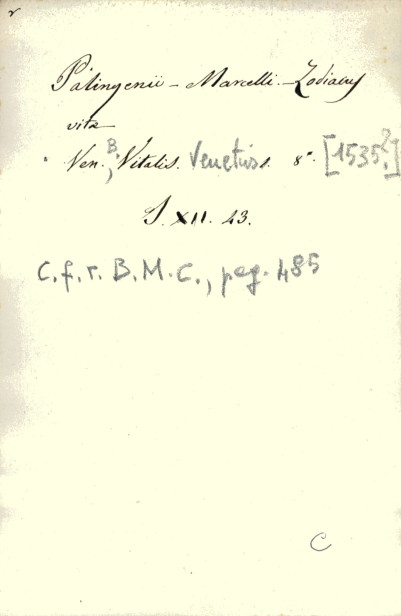 r
Palingenii - Marcelli. - Zodiacus
vitæ
Ven., B. Vitalis. Venetiis. 8°. [1535?]
S. XII. 43.
C.f.r. B.M.C., pag. 485
C